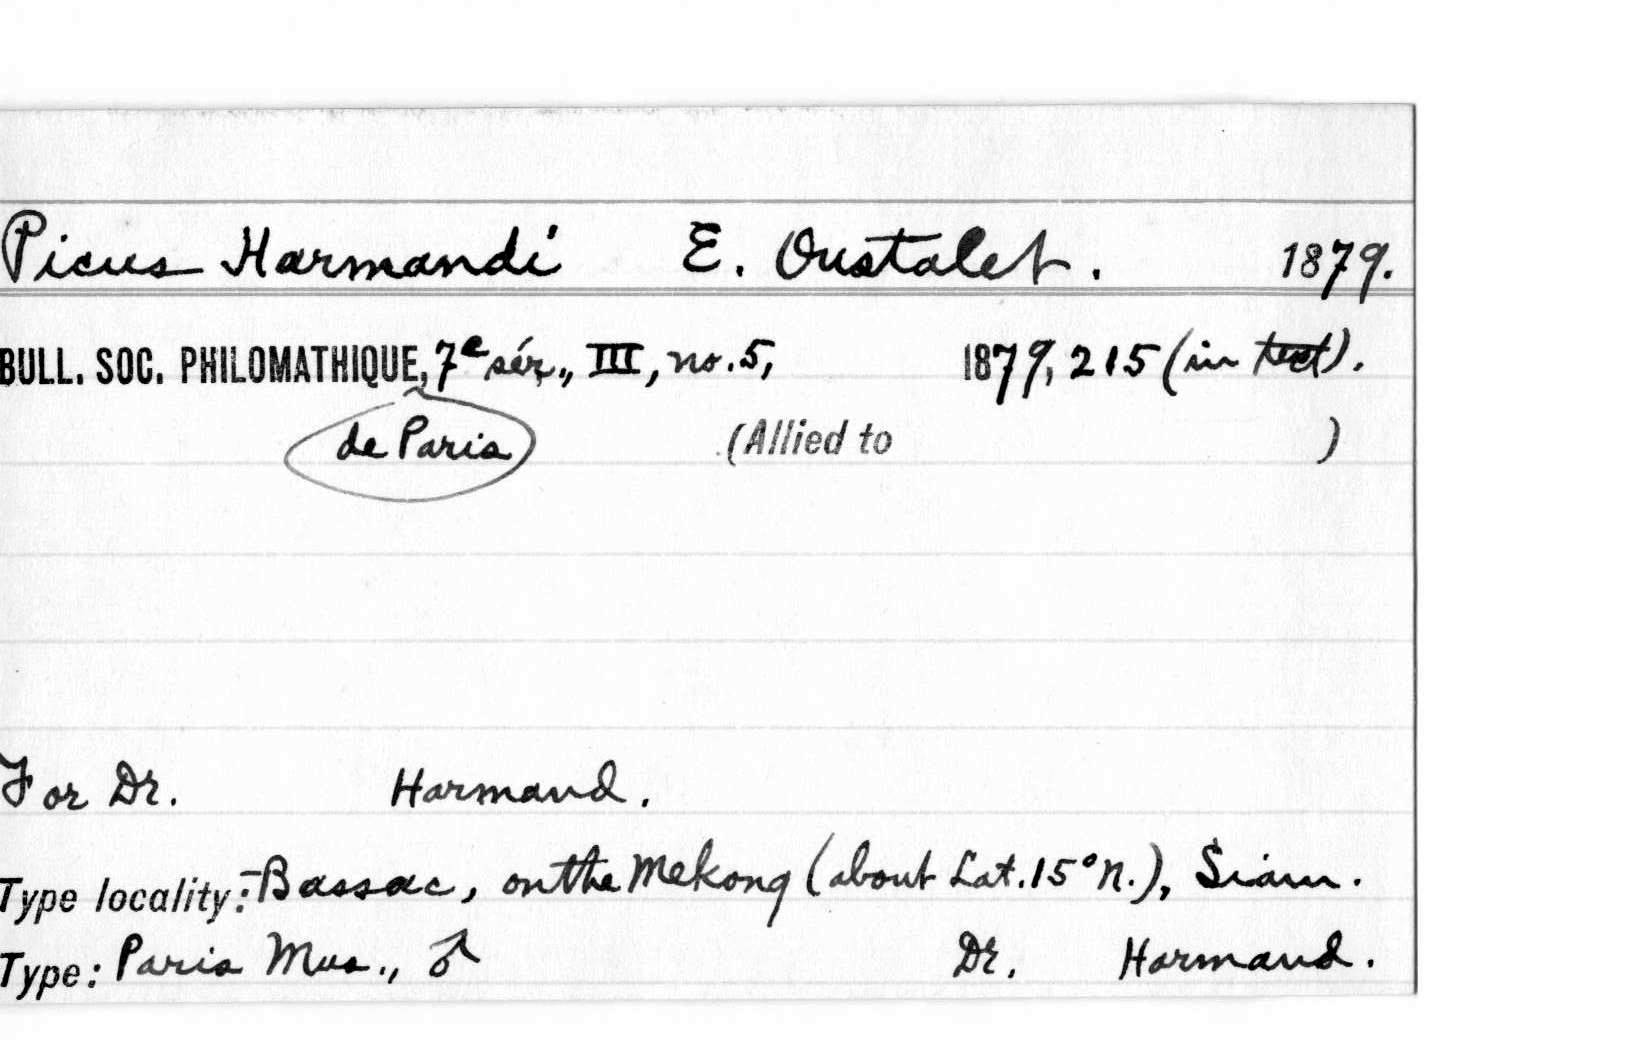 Picus Harmandi E. Oustalet. 1879.
BULL. SOC. PHILOMATHIQUE, 7e sér., III, no. 5, 1879, 215 (in text).
de Paris (Allied to )
For Dr. Harmand.
Type locality:- Bassac, on the Mekong (about Lat. 15° N.), Siam.
Type: Paris Mus., ♂ Dr. Harmand.